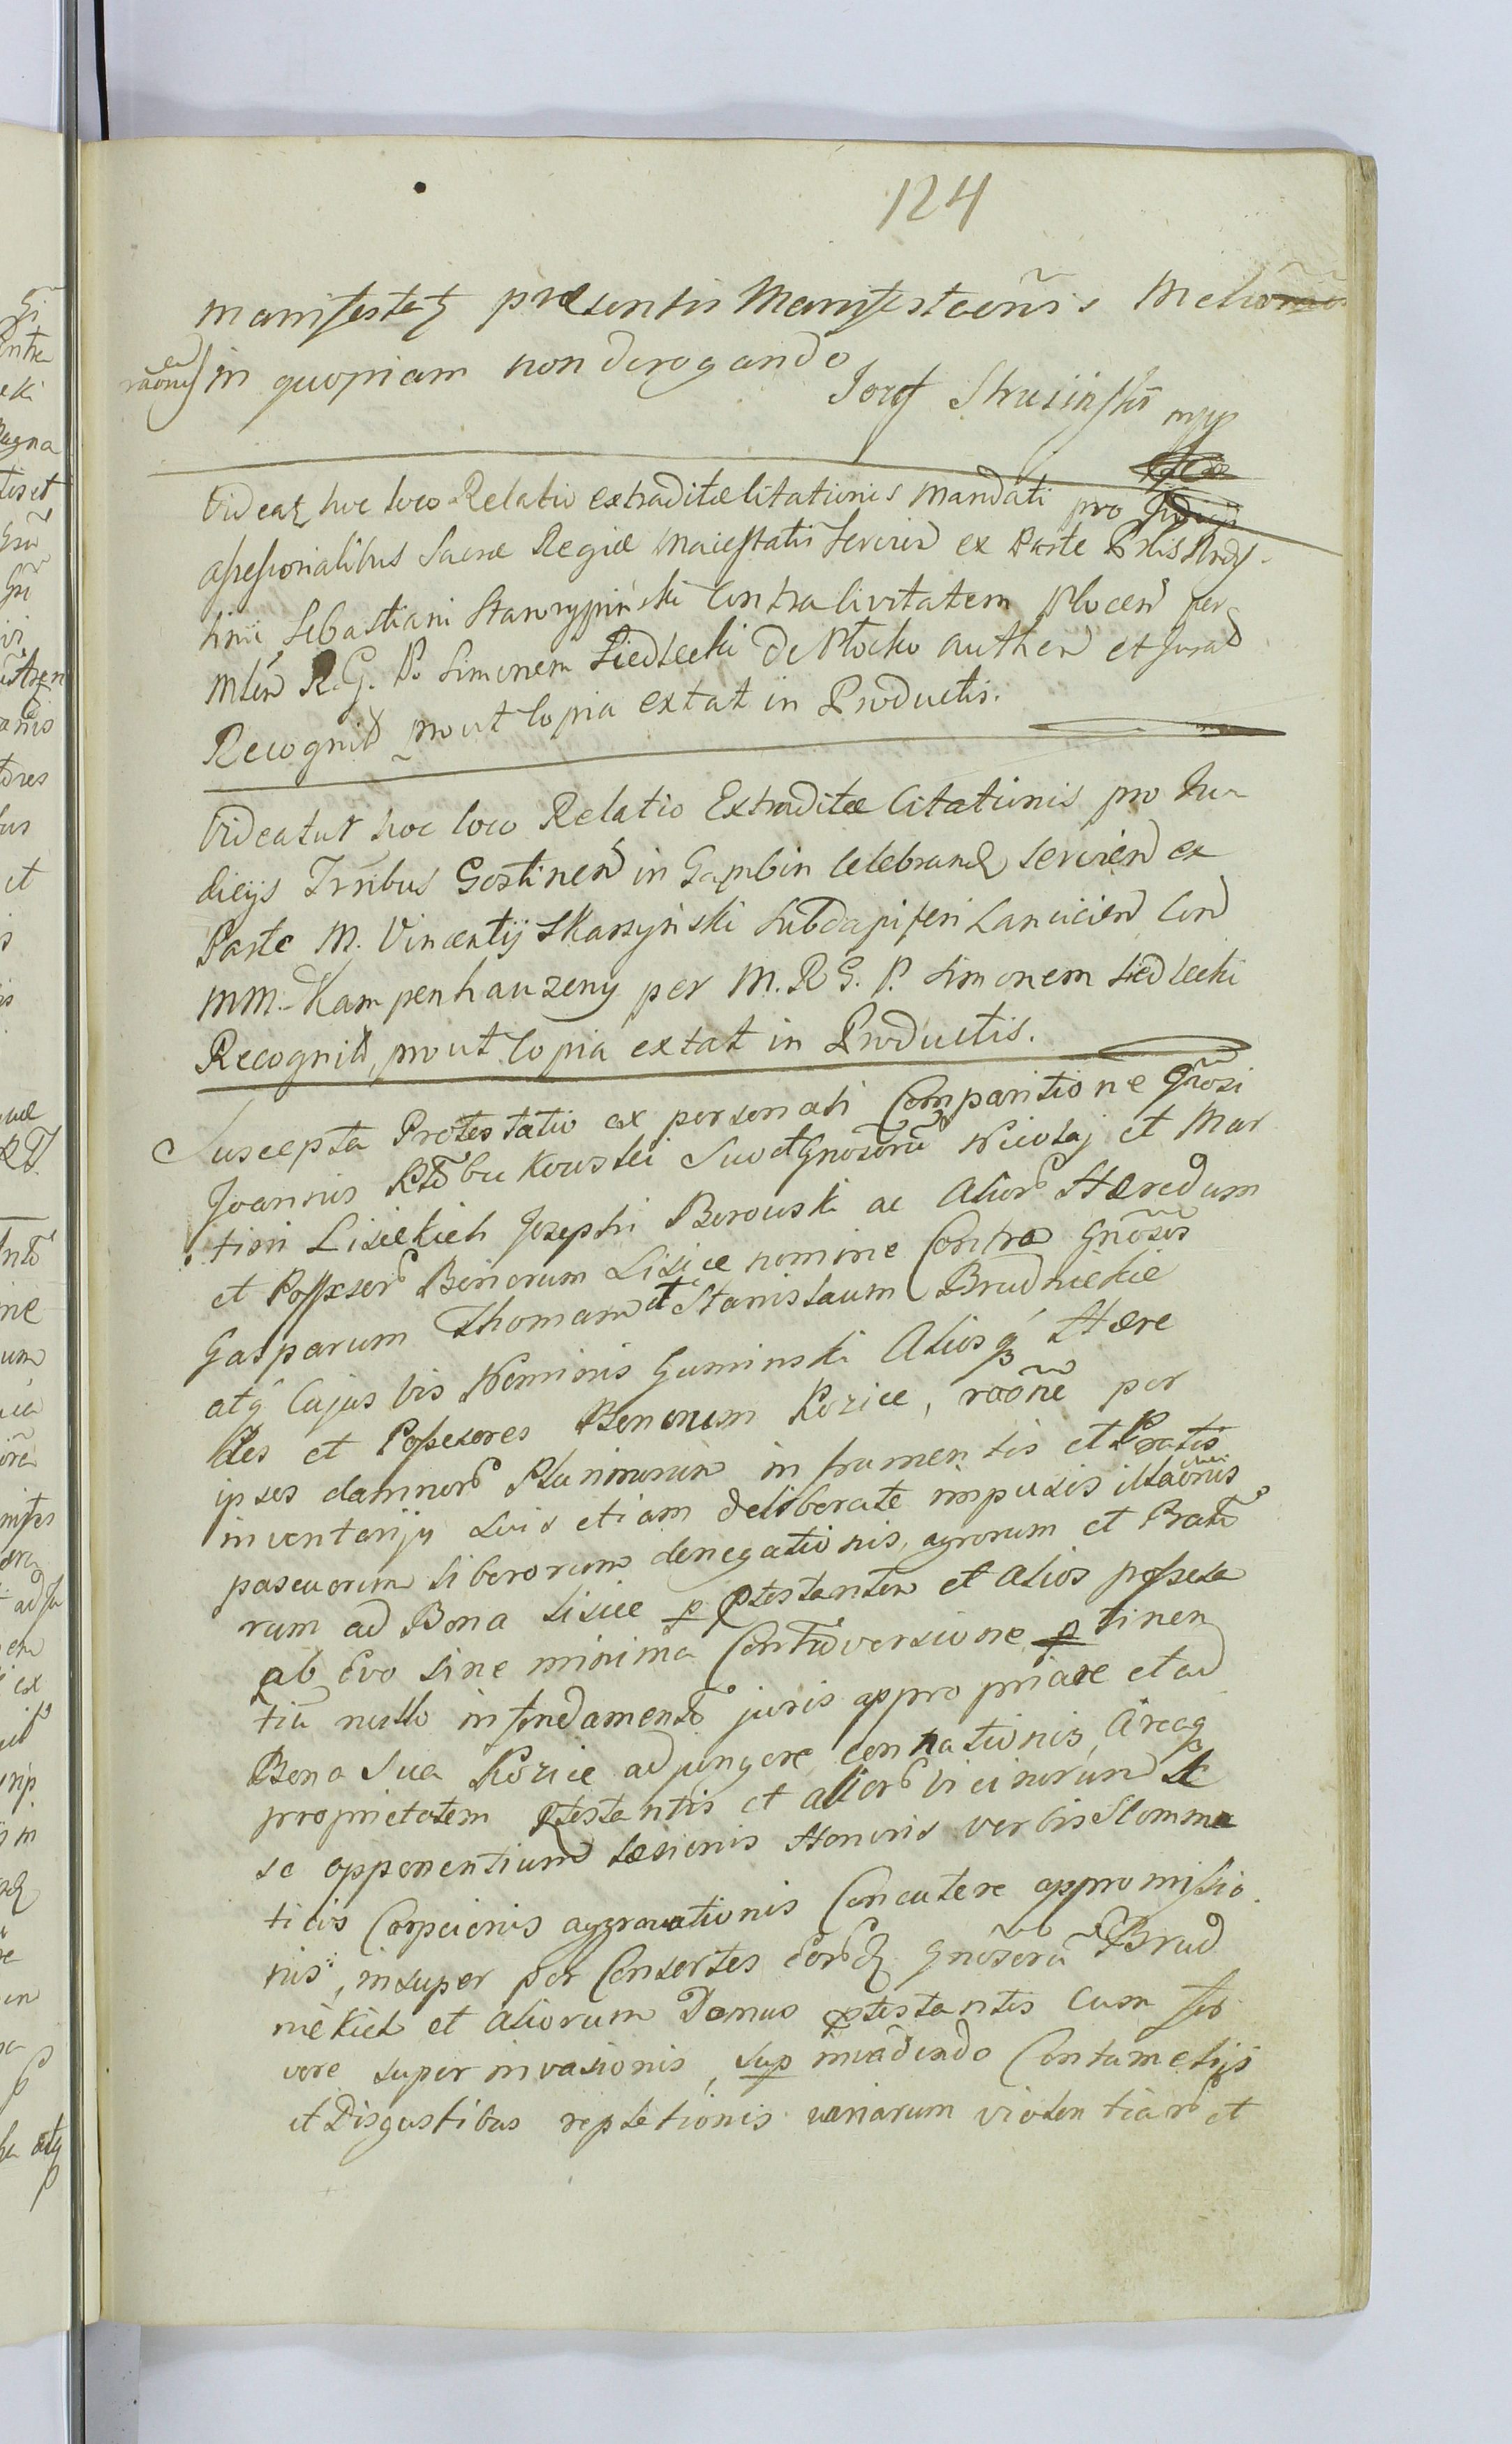 124
manifestatꝫ præsentis Manifestaoñis Melio
raonej in quopiam non derogando
Jozef Struśiński mpp
Videatꝫ hoc loco Relatio extraditæ Citationis Mandati pro Judicijs
assessorialibus Sacræ Regiæ Maiestatis servien ex Parte
Sebastiani Starorypiński Contra Civitatem Plocen per
Mlem R. G. P. Simonem Siedlecki De Płocko authen et Jurat
Recognit prout Copia extat in Productis.
Videatur hoc loco Relatio Extraditæ Citationis pro Ju-
dicijs Trribus Gostinen in Gąmbin Celebrand servien ex
Parte M. Vincentij Skarzyński Subdapiferi Lancicien Con
MM. Kampenhauzeny per M. R. G. P. Simonem Siedlecki
Recognit, prout Copia extat in Productis.
Suscepta Protestatio ex personali Comparitione Gnosi
Joannis Kłobukowski Suo et Gnosorū Nicolaj et Mar
tini Lisickich Josephi Borowski ac Alior Hæredum
et Possessor Bonorum Lisice nomine Contra Gnosos
Gasparum Thomam et Stanislaum Brudnickie
atq Cujus vis Nominis Guminski Aliosq Hære
des et Possesores Bonorum Kozice, raoñe per
ipsos damnor Plurimorum in frumentis et Pratis
inventarijs suis etiam deliberate impulsis illaoñis
pascuorum liberorum denegationis, agrorum et Prato
rum ad Bona Lisice p ptestanten et alios possesso
ab Evo sine minima Controversione p tinen
tiū nullo in fundamento juris appropriare et ad
Bona Sua Kozice adjungere conationis, Circaq
proprietatem ptestantis et alior vicinorum
se opponentium læsionis Honoris verbis Stomma
ticis Corpcionis aggravationis Concutere appromissio
nis, insuper per Consortes eord Gnosorū Brud
nickich et aliorum Domus ptestantis cum fer
vore super invasionis, sup invadendo Contumelijs
et Disgustibus repletionis variarum violentiar et